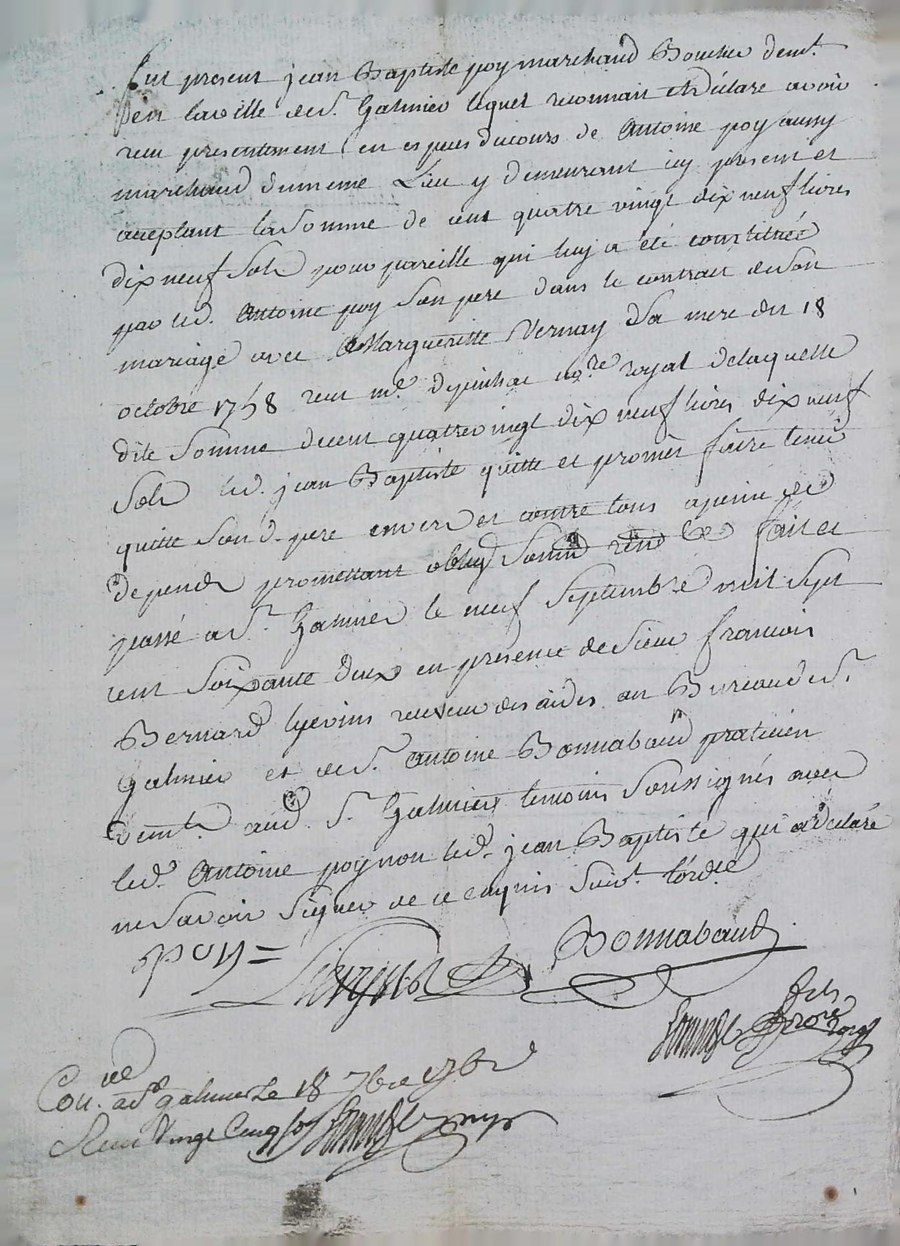 fut present jean Baptiste poy marchand Boucher demt.
en la ville de st. Galmier lequel reconnait et déclare avoir
reçu presentement en especes du cours de Antoine poy aussy
marchand du meme Lieu y demeurant icy present et
acceptant la Somme de cent quatre vingt dix neuf livres
dix neuf Sols pour pareille qui luy a été constituée
par led. Antoine poy Son pere dans le contrat de Son
mariage avec Margueritte Vernay Sa mere du 18
octobre 1758 recu me. nore. royal de laquelle
dite Somme de cent quatre vingt dix neuf livres dix neuf
Sols led. jean Baptiste quitte et promet faire tenir
quitte Sond. pere envers et contre tous a peine de
depends promettant oblig. Soum ren &c fait et
passé a st. Galmier le neuf Septembre mil Sept
cent Soixante deux en presence de Sieur francois
Bernard lyevins receveur des aides au Bureau de st.
Galmier et de st. Antoine Bonnabaud praticien
demt. aud. st. Galmier temoins Soussignés avec
led. Antoine poy non led. jean Baptiste qui a declaré
ne Savoir Signer de ce enquis Suivt. l'ordce
poy = Bonnabaud
Con.lé a st. galmier Le 18 7bre 1762
Recu Vingt Cinq sols